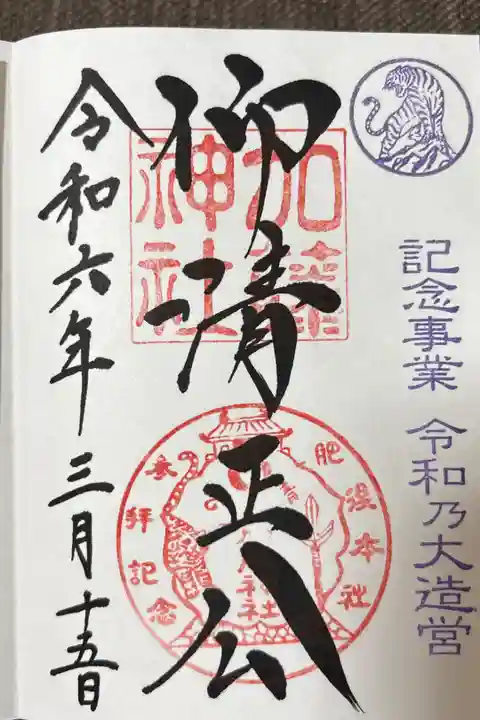 記念事業 令和乃大造営
仰清正公
加藤神社
肥後本社
参拝記念
令和六年三月十五日